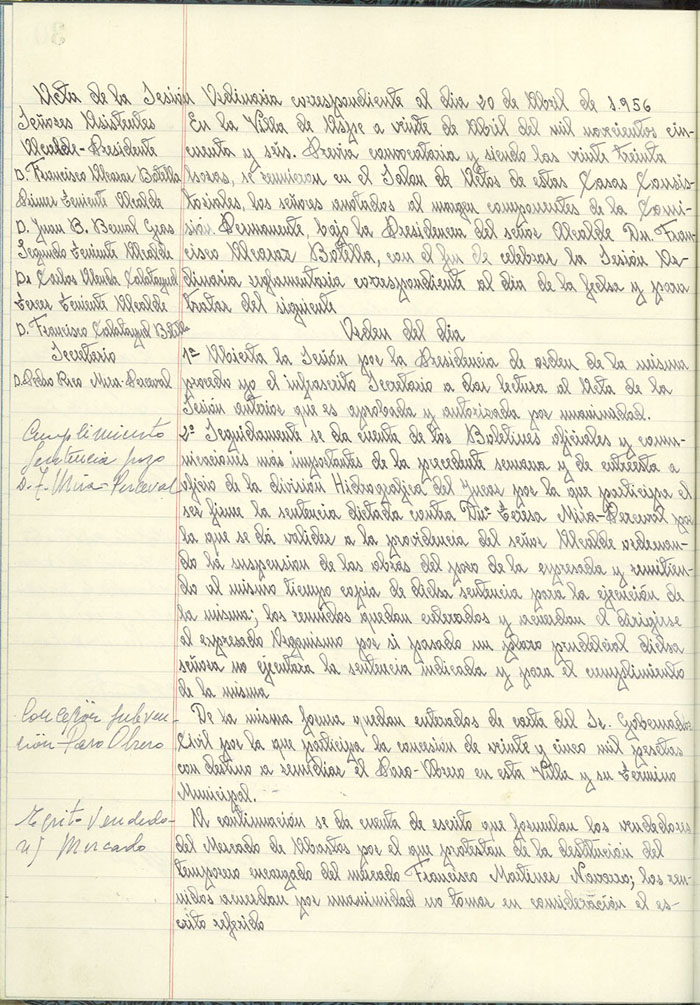 Acta de la Sesión Ordinaria correspondiente al dia 20 de Abril de 1.956
Señores Asistentes
Alcalde-Presidente
D. Francisco Alcaraz Botella
Primer Teniente Alcalde
D. Juan B. Bernal Gras
Segundo Teniente Alcalde
Dn Carlos Alenda Calatayud
Tercer Teniente Alcalde
D. Francisco Calatayud Botella
Secretario
D. Pedro Rico Mira-Perceval
En la Villa de Aspe a veinte de Abril del mil novecientos cin-
cuenta y séis. Previa convocatoria y siendo las veinte treinta
horas, se reunieron en el Salon de Actos de estas Casas Consis-
toriales, los señores anotados al margen componentes de la Comi-
sión Permanente, bajo la Presidencia del señor Alcalde Dn. Fran-
cisco Alcaraz Botella, con el fin de celebrar la Sesión Or-
dinaria reglamentaria correspondiente al dia de la fecha y para
tratar del siguiente
Orden del dia
1º Abierta la Sesión por la Presidencia de orden de la misma
procedo yo el infrascrito Secretario a dar lectura al Acta de la
Sesión anterior que es aprobada y autorizada por unanimidad.
Cumplimiento
sentencia pozo
D. T. Mira-Perceval
2º Seguidamente se da cuenta de los Boletines oficiales y comu-
nicaciónes más importantes de la precedente semana y de entresta a
oficio de la división Hidrografica del Jucar por la que participa el
ser firme la sentencia dictada contra Dña. Teresa Mira-Perceval por
la que se dá valides a la providencia del señor Alcalde ordenan-
do la suspension de las obras del pozo de la expresada y remitien-
do al mismo tiempo copia de dicha sentencia para la ejención de
la misma; los reunidos quedan enterados y acuerdan el dirigirse
al expresado Organismo por si pasado un plazo prudencial dicha
señora no ejecutara la sentencia indicada y para el cumplimiento
de la misma
Concesión subven-
ción Paro Obrero
De la misma forma quedan enterados de carta del Sr. Gobernador
Civil por la que participa la concesión de veinte y cinco mil pesetas
con destino a remidiar el Paro-Obrero en esta Villa y su Termino
Municipal.
Escrito Vendedo-
res Mercado
A continuación se da cuenta de escrito que formulan los vendedores
del Mercado de Abastos por el que protestan de la destitución del
temporero encargado del mercado Francisco Martines Navarro; los reu-
nidos acuerdan por unanimidad no tomar en consideración el es-
crito referido